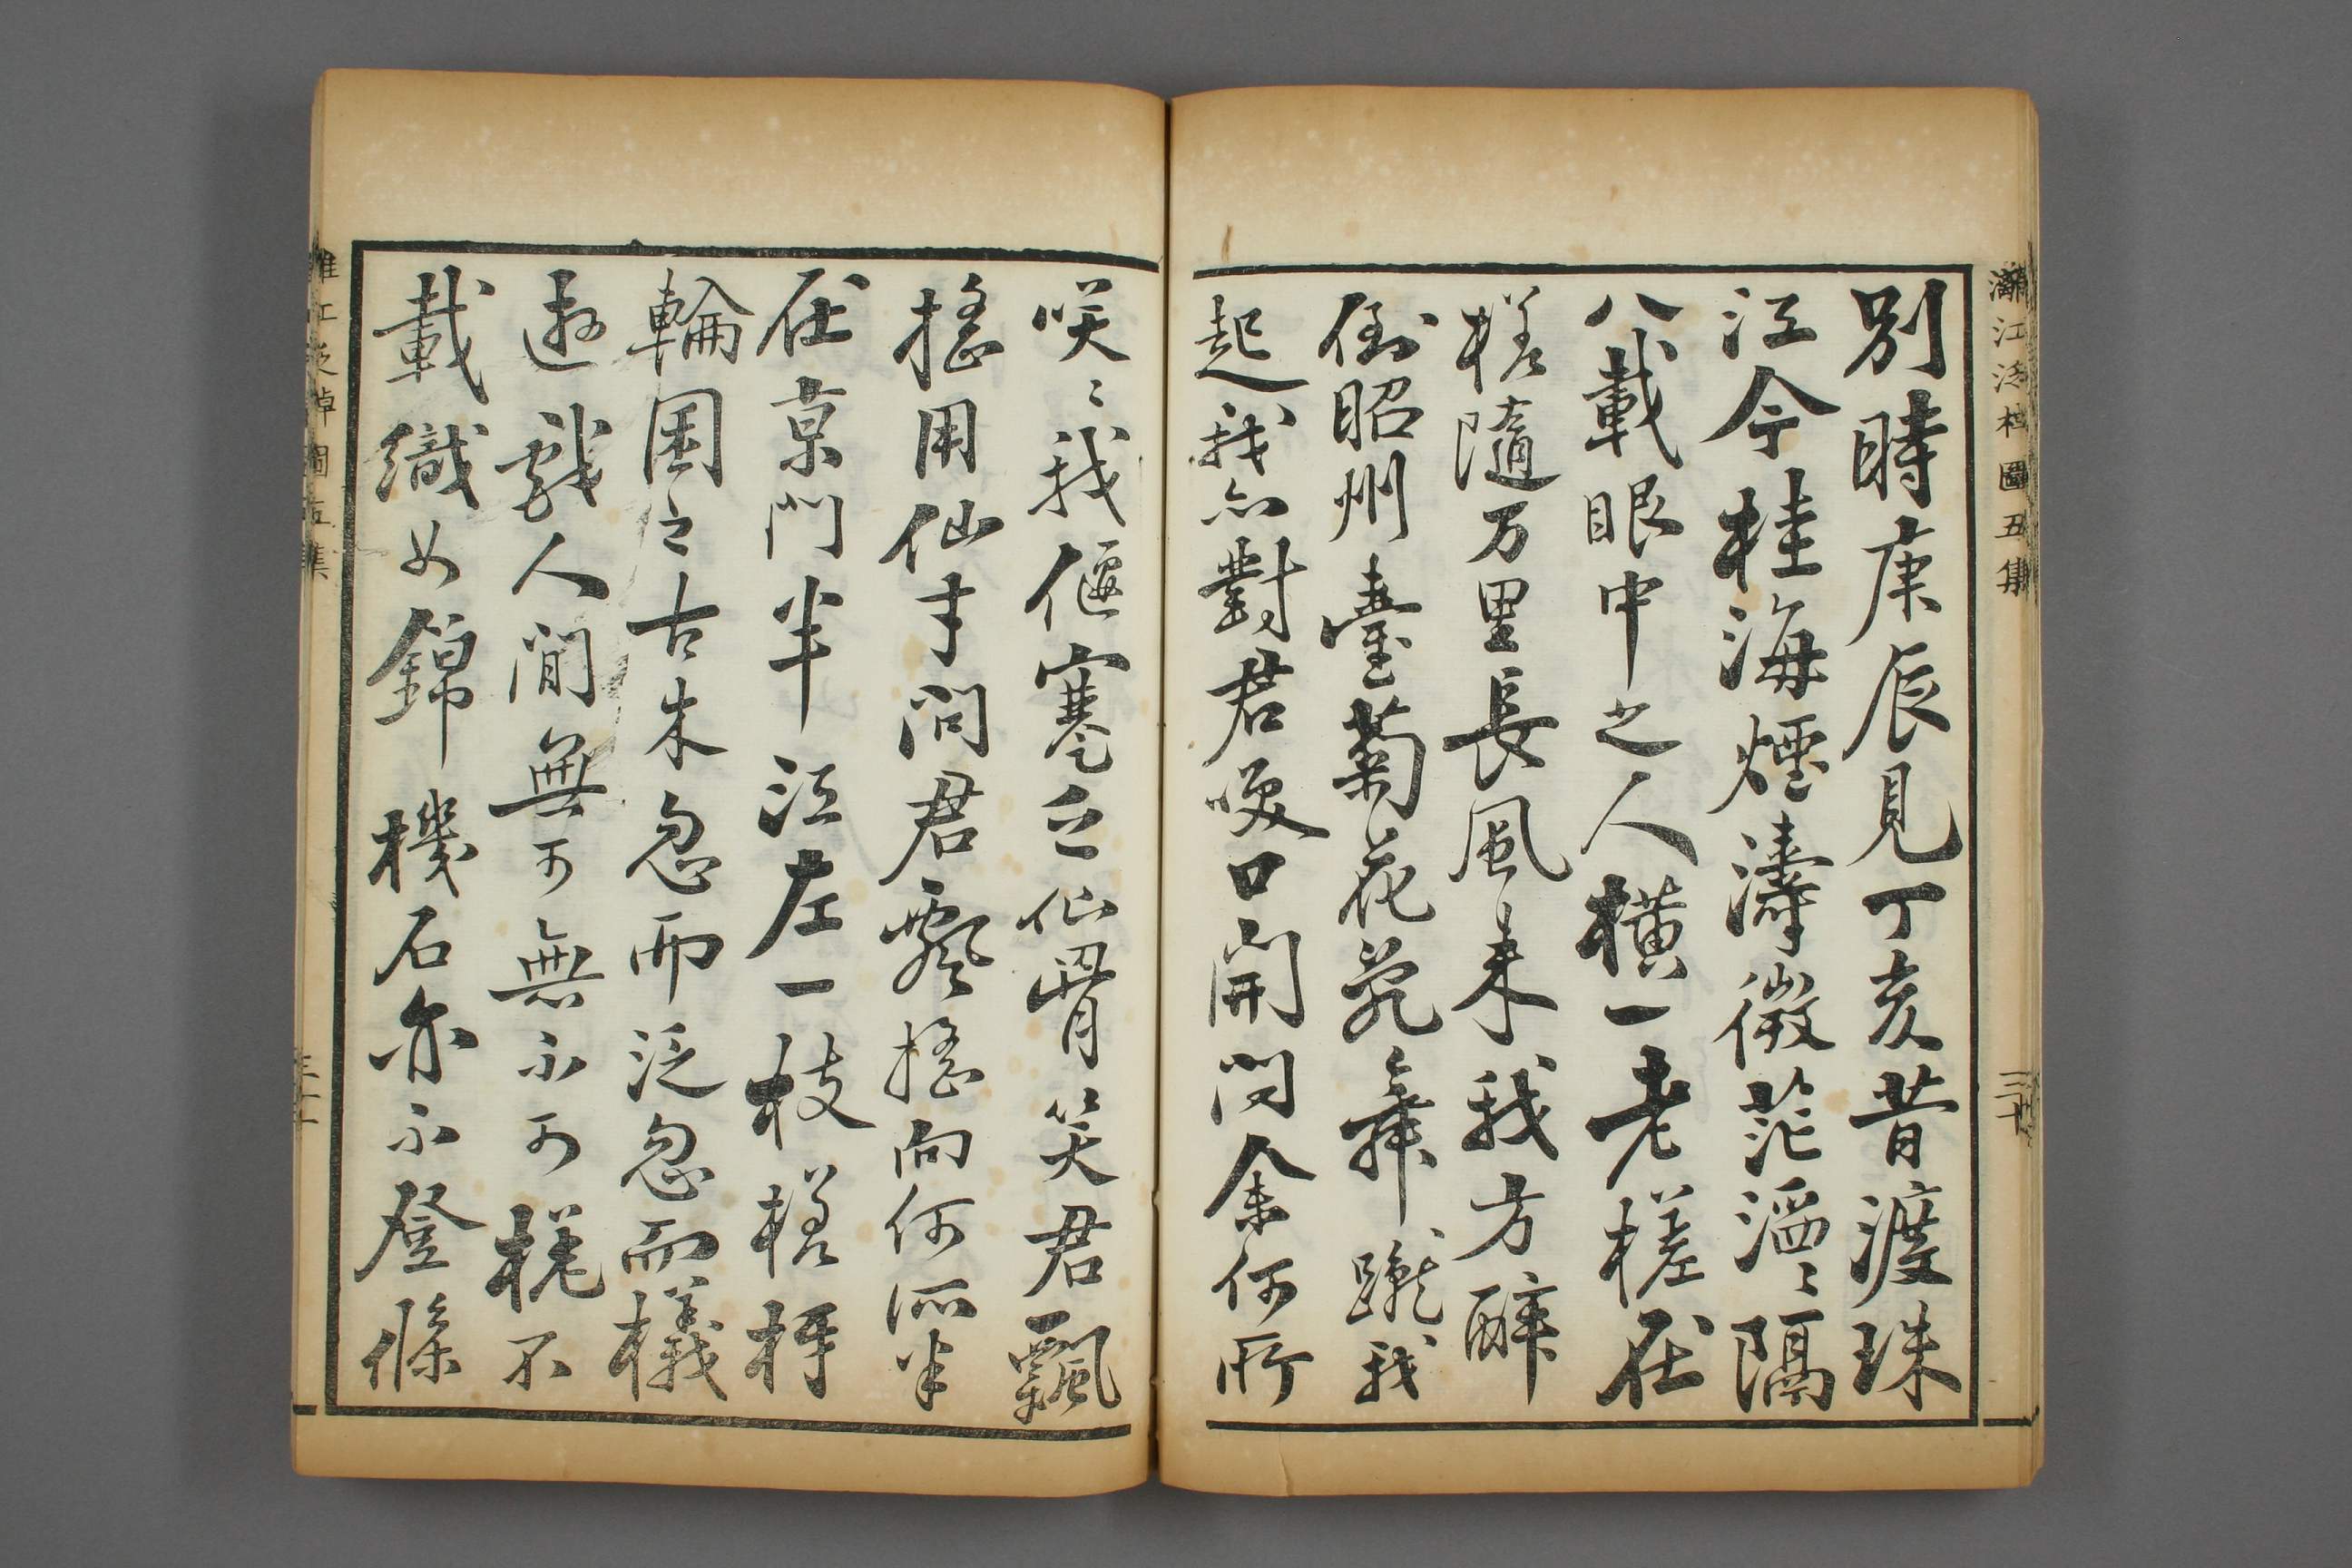 灕江泛棹圖五集
別時庚辰見丁亥昔渡珠
江今桂海煙濤微茫漚〻隔
八載眼中之人橫一老槎在
槎隨万里長風来我方醉
倒昭州臺菊花亂舞蹴我
起我亦對君嗳口開問余何所
三十
咲〻我偃蹇乏仙骨笑君飄
搖用仙才問君飄搖向何所半
在京門半江左一枝槎枒
輪囷之古木忽而泛忽而檥
遊戲人間無可無不可槎不
載織女錦機石亦不登條
灕江泛棹圖五集